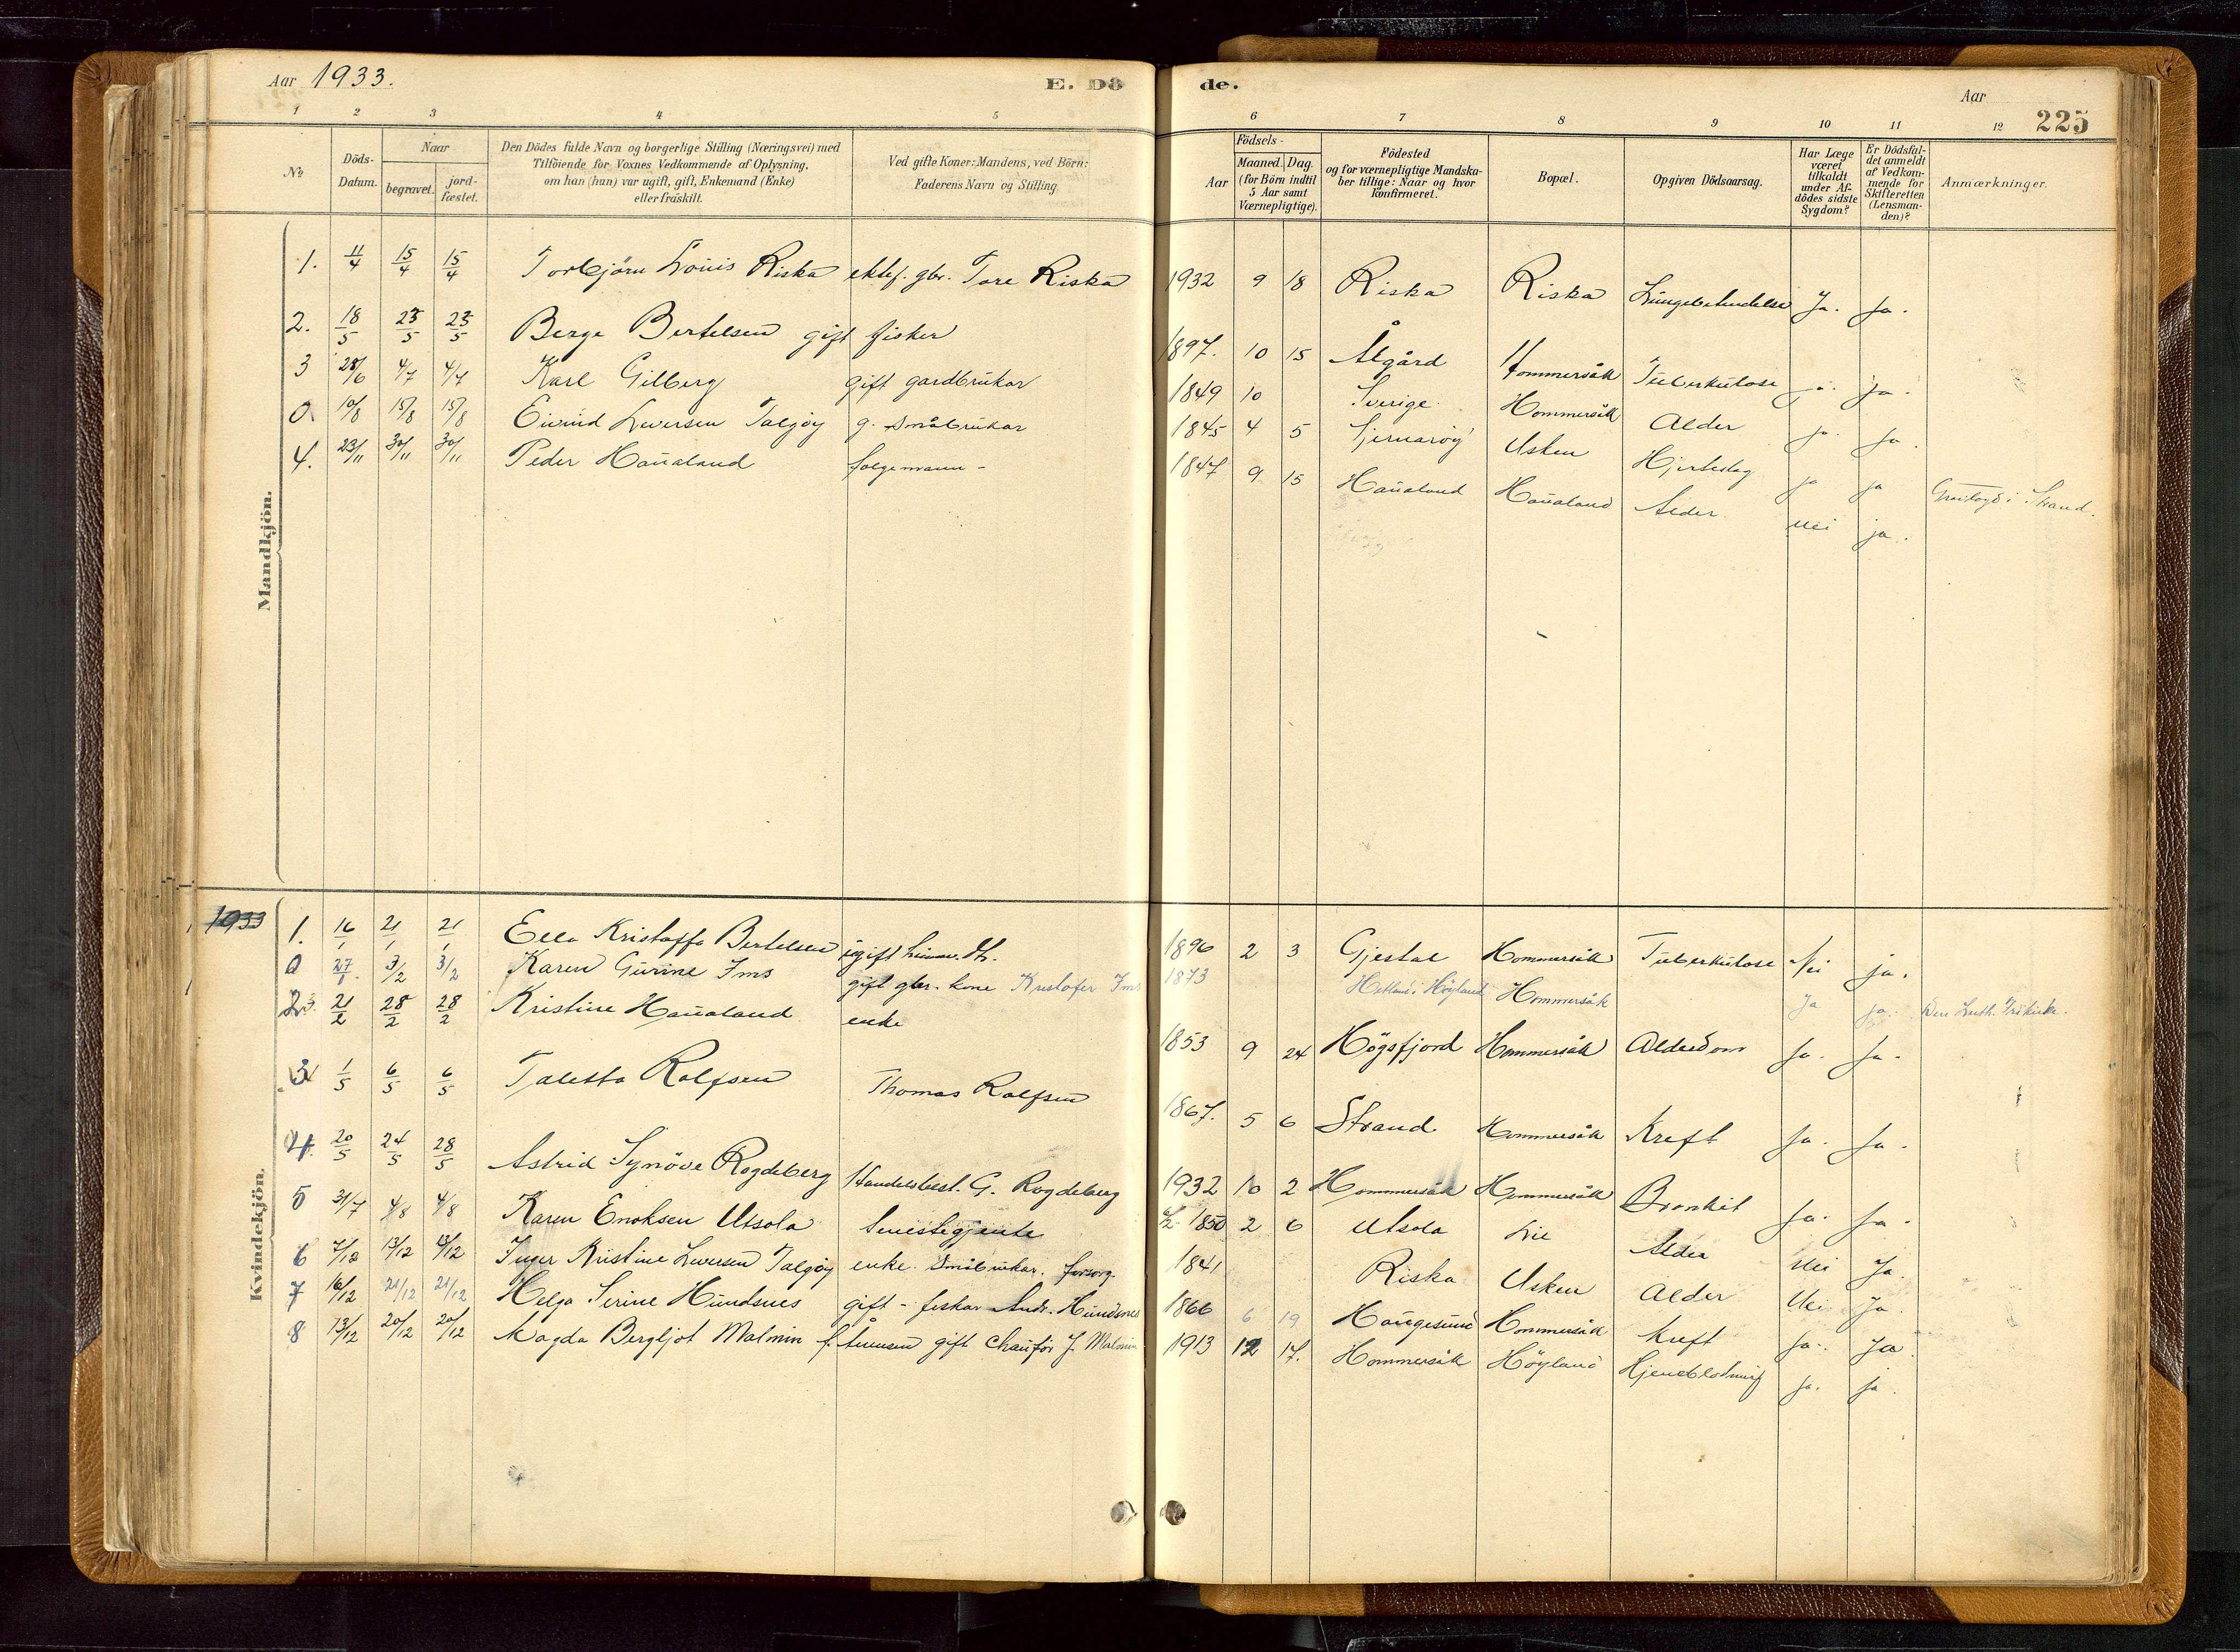 Aar 1933.
E. Dö
de.
Aar
225
1 2 3 4 5 6 7 8 9 10 11 12
No
Döds-Datum.
Naar
begravet.
jord-fæstet.
Den Dödes fulde Navn og borgerlige Stilling (Næringsvei) med
Tilföiende for Voxnes Vedkommende af Oplysning,
om han (hun) var ugift, gift, Enkemand (Enke)
eller fraskilt.
Ved gifte Koner: Mandens, ved Börn:
Faderens Navn og Stilling.
Födsels-
Aar
Maaned. Dag.
(for Börn indtil
5 Aar samt
Værnepligtige).
Födested
og for værnepligtige Mandska-
ber tillige: Naar og hvor
konfirmeret.
Bopæl.
Opgiven Dödsaarsag.
Har Læge
været
tilkaldt
under Af-
dödes sidste
Sygdom?
Er Dödsfal-
det anmeldt
af Vedkom-
mende for
Skifteretten
(Lensman-
den)?
Anmærkninger.
Mandkjön.
1. 11/4 15/4 15/4 Torbjörn Louis Riska ektef. gbr. Tore Riska 1932 9 18 Riska Riska Lungebetendelse Ja. Ja.
2. 18/5 23/5 23/5 Berge Bertelsen gift fisker 1897. 10 15 Ålgård Hommersåk Tuberkulose ja. ja.
3 28/6 4/7 4/7 Karl Gilberg gift gardbrukar 1849 10 Sverige Hommersåk Alder ja. ja.
0. 10/8 15/8 15/8 Eivind Iversen Talgöy g. småbrukar 1845 4 5 Sjernaröy Usken Hjerteslag ja ja Gravlagd i Strand.
4. 23/11 30/11 30/11 Peder Haualand folgemann - 1847 9 15 Haualand Haualand Alder nei ja.
Kvindekjön.
1933
1. 16/1 21/1 21/1 Ella Kristoffa Bertelsen ugift 1896 2 3 Gjestal Hommersåk Tuberkulose Nei ja.
0 27/1. 3/2 3/2 Karen Gurine Ims gift gbr. kone Kristofer Ims 1873 Hetland i Höyland Hommersåk Ja ja. Den Luth. Frikirke.
2. 21/2 28/2 28/2 Kristine Haualand enke 1853 9 24 Högsfjord Hommersåk Alderdom Ja. Ja.
3 1/5 6/5 6/5 Taletta Rolfsen Thomas Rolfsen 1867. 5 6 Strand Hommersåk Kreft Ja. Ja.
4. 20/5 24/5 28/5 Astrid Synöve Rogdeberg Handelsbest. G. Rogdeberg 1932 10 2 Hommersåk Hommersåk Bronkit Ja. Ja.
5 31/7 4/8 4/8 Karen Enoksen Utsola tenestegjente 1850 2 6 Utsola Lie Alder Nei Ja.
6 7/12 13/12 13/12 Inger Kristine Iversen Talgöy enke småbrukar. forsorg. 1841 Riska Usken Alder Nei Ja.
7 16/12 21/12 21/12 Helga Serine Hundsnes gift - fiskar Andr. Hundsnes 1866 6 19 Haugesund Hommersåk Kreft Ja. Ja
8 13/12 20/12 20/12 Magda Bergljot Malmin f. gift Chaufför J. Malmin 1913 12 17. Hommersåk Höyland Hjerneblødning Ja. Ja.